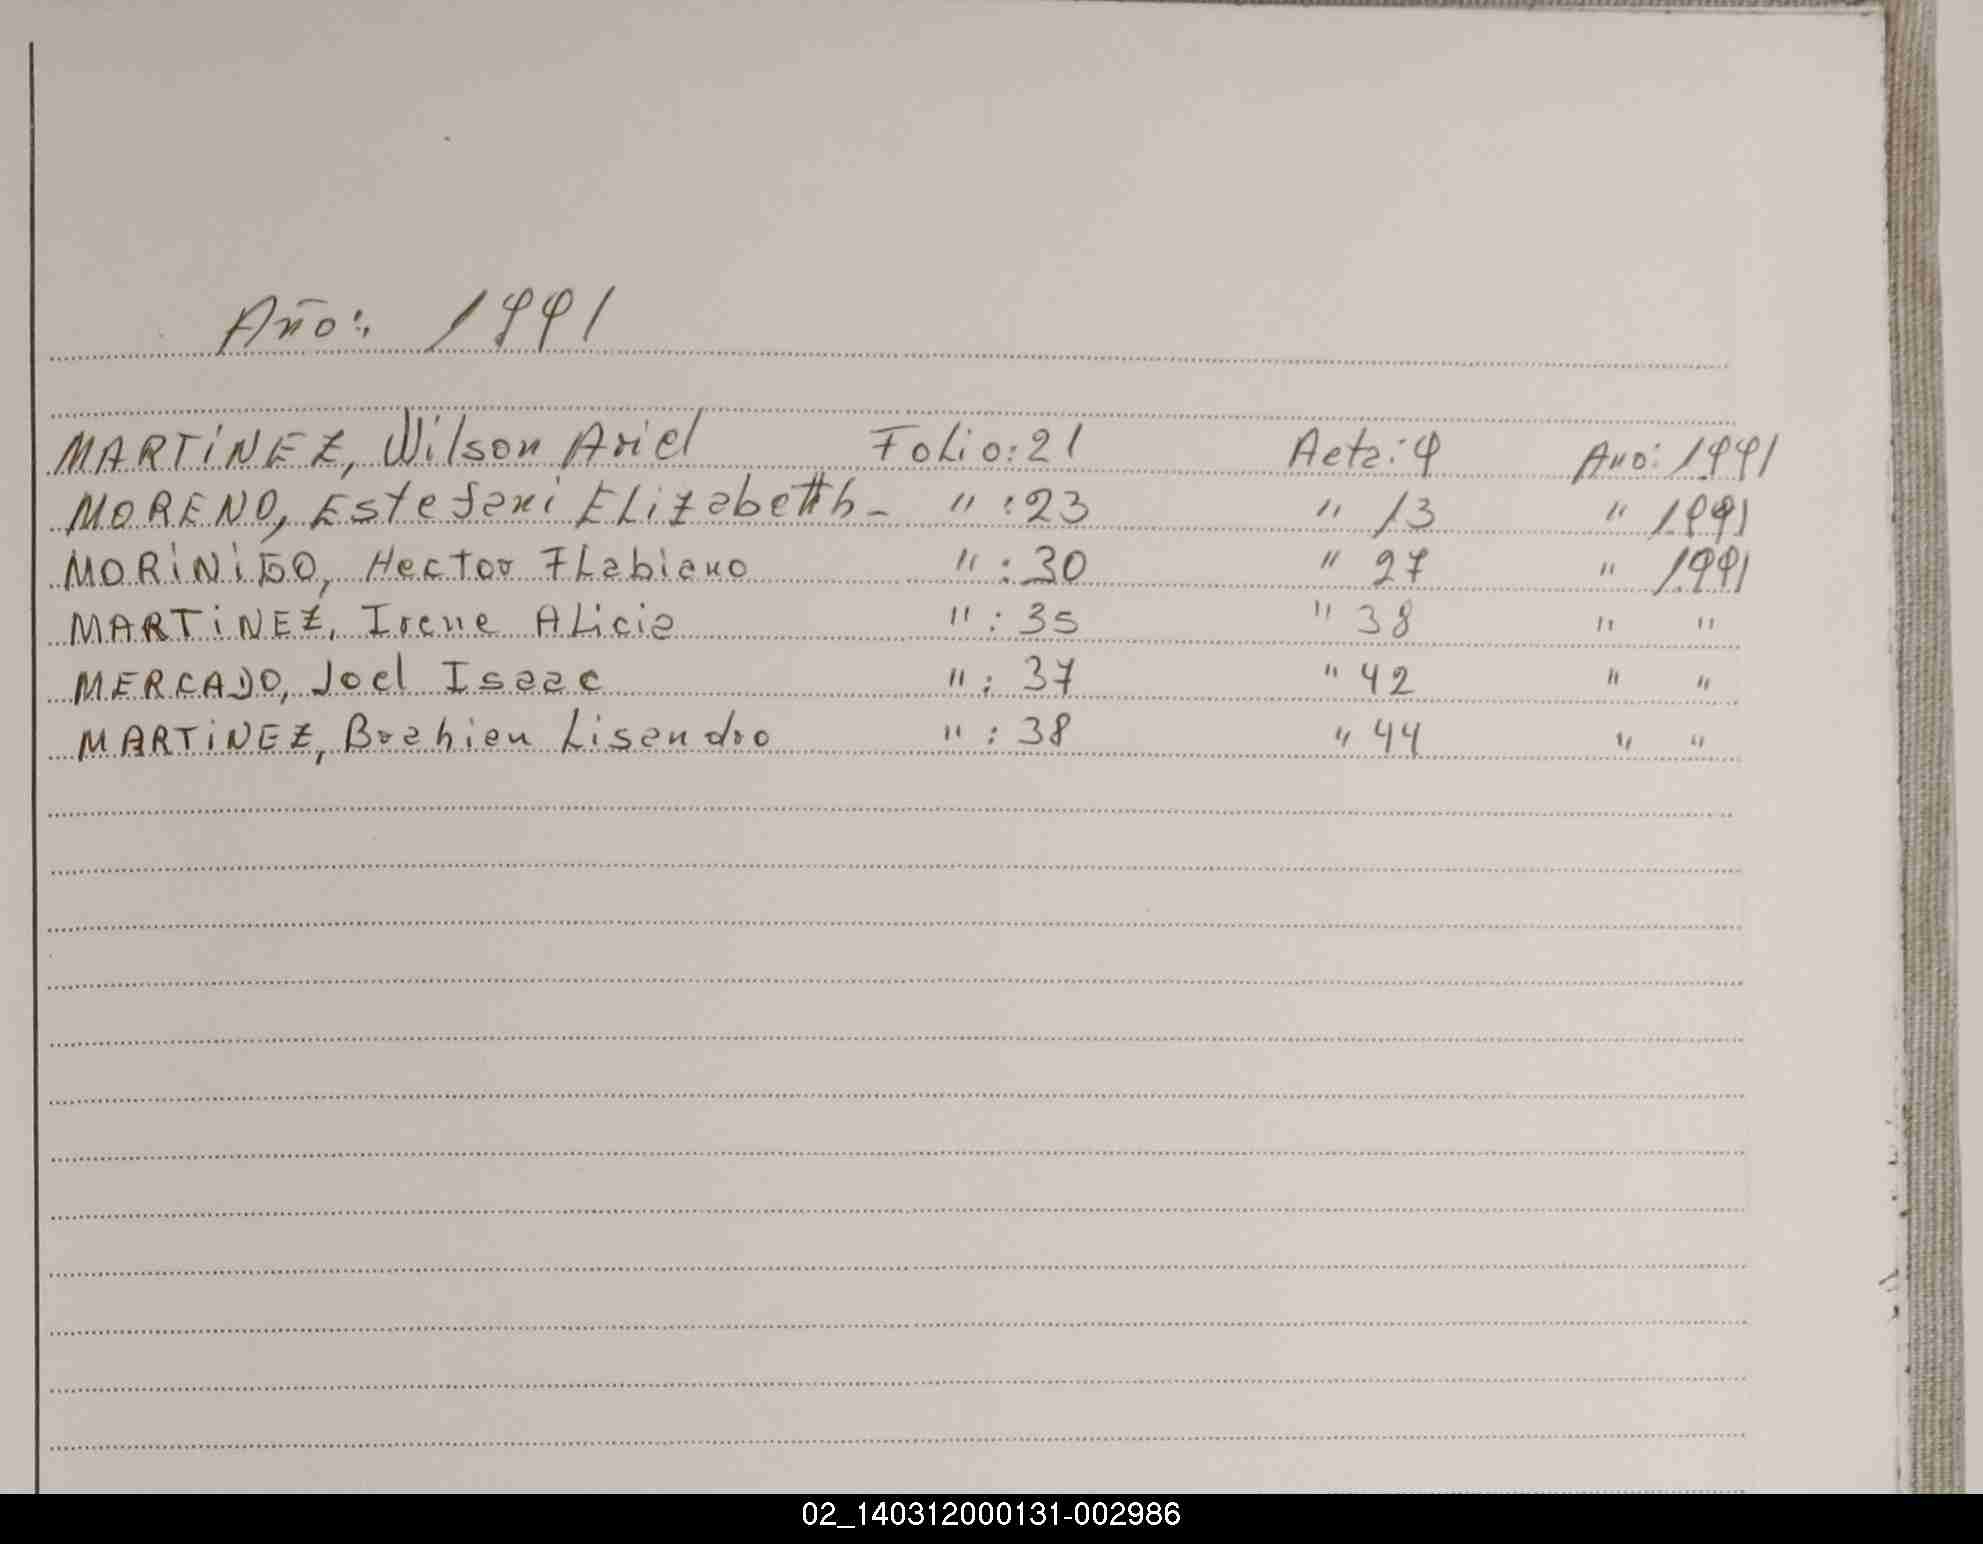 Año:, 1991
MARTiNEZ, Wilson Ariel Folio:21 Acta:9 Año:1991
MORENO, Estefani Elizabetth- " :23 " 13 " 1991
MORiNiGO, Hector Flabiano " :30 " 27 " 1991
MARTiNEZ, Irene Alicia " : 35 " 38 " "
MERCADO, Joel Isaac " : 37 " 42 " "
MARTiNEZ, Brahien Lisandro " : 38 " 44 " "
02_140312000131-002986